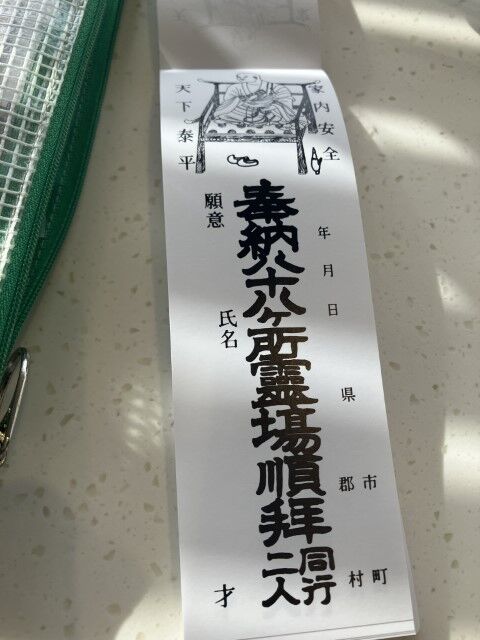 家内安全
年月日 県 市 郡 町 村
奉納八十八ヶ所霊場順拝 同行二人
天下泰平
願意
氏名 才